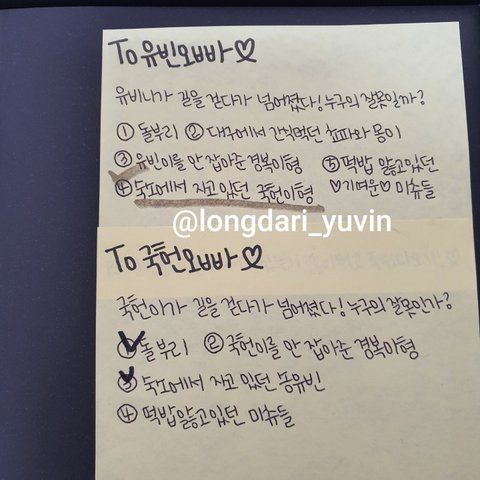 To 유빈오빠♡
유비니가 길을 걷다가 넘어졌다! 누구의 잘못일까?
① 돌부리 ② 대구에서 간식먹던 초파와 몽이
③ 유빈이를 안 잡아준 경복이형 ⑤ 떡밥 앓고있던
④ 숙소에서 자고 있던 국헌이형 ♡기여운♡ 미슈들
@longdari_yuvin
To 국헌오빠♡
국헌이가 길을 걷다가 넘어졌다! 누구의 잘못인가?
① 돌부리 ② 국헌이를 안 잡아준 경복이형
③ 숙소에서 자고 있던 송유빈
④ 떡밥앓고있던 미슈들